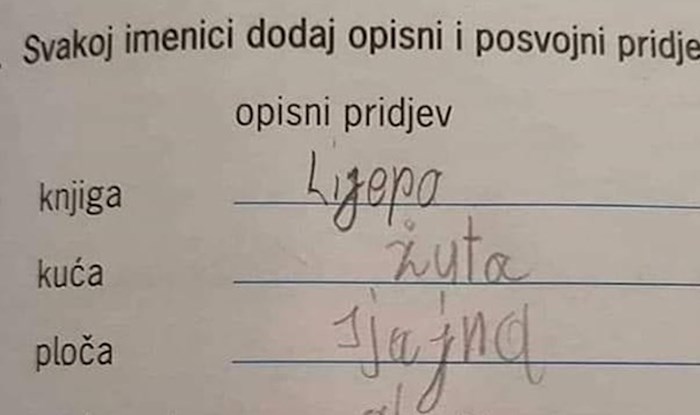 Svakoj imenici dodaj opisni i posvojni pridje
opisni pridjev
knjiga Lijepa
kuća žuta
ploča sjajna